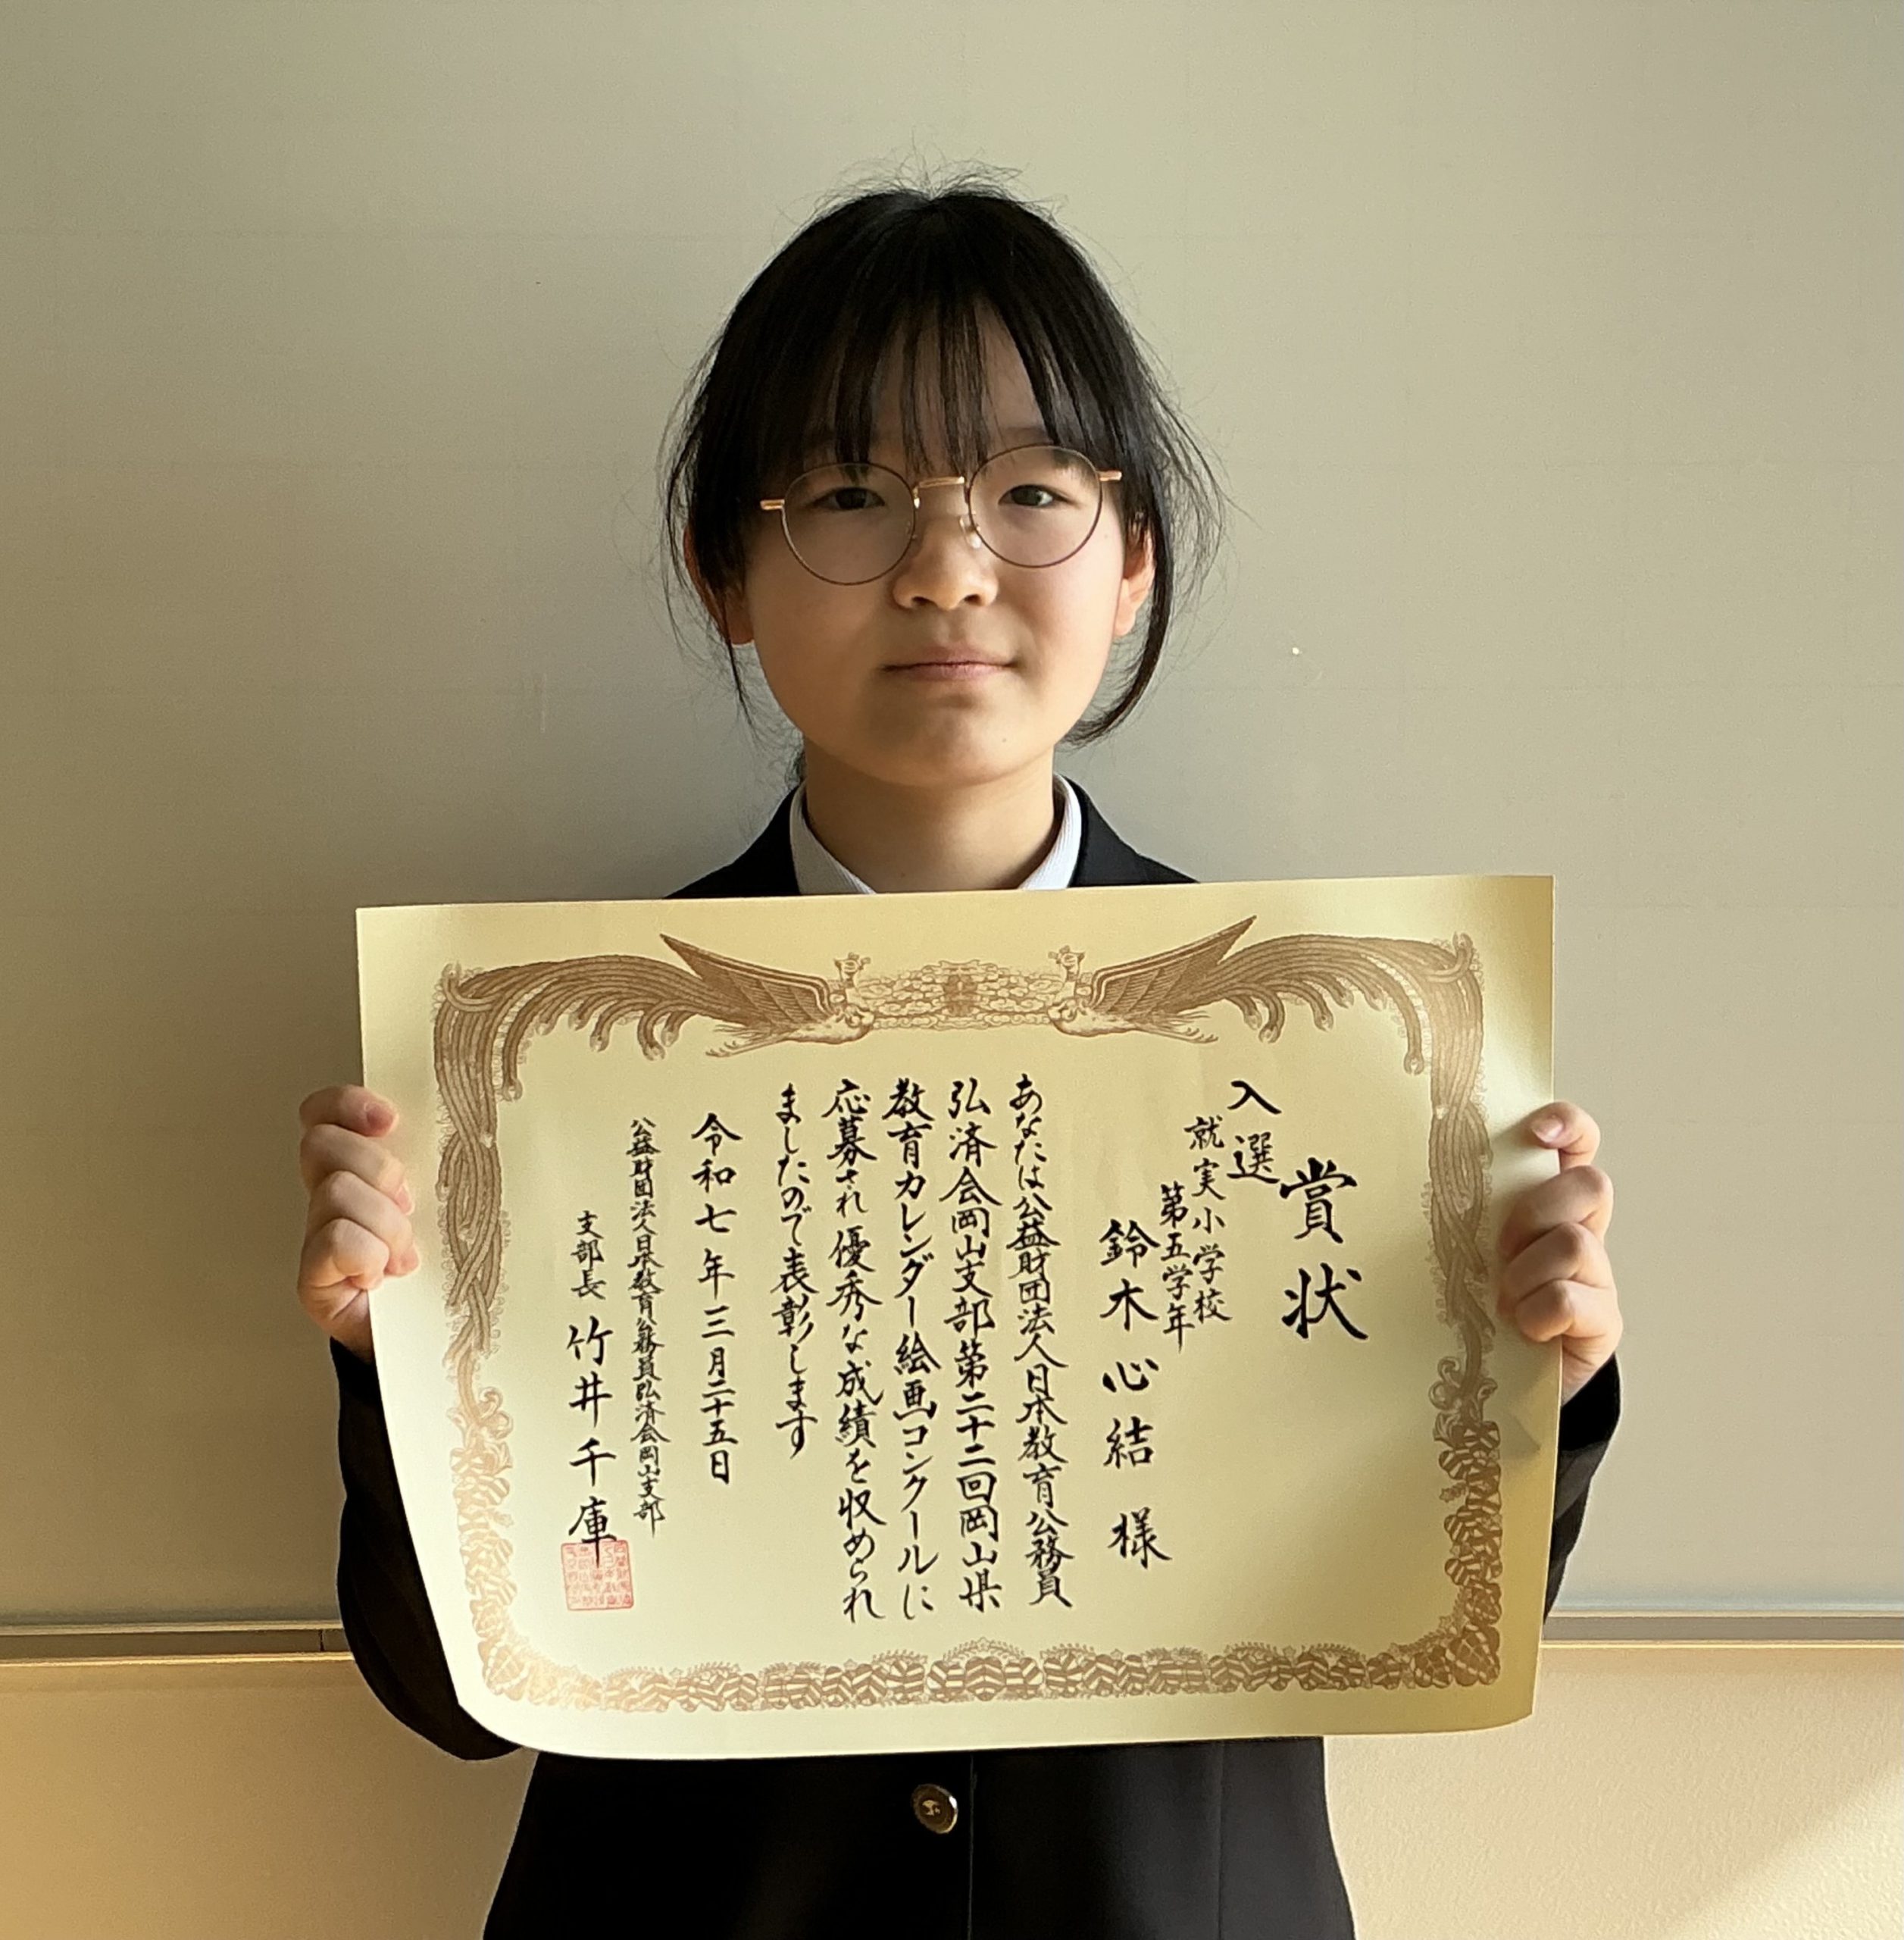 賞状
入選
就実小学校
第五学年
鈴木心結様
あなたは公益財団法人日本教育公務員
弘済会岡山支部第二十二回岡山県
教育カレンダー絵画コンクールに
応募され優秀な成績を収められ
ましたので表彰します
令和七年三月二十五日
公益財団法人日本教育公務員弘済会岡山支部
支部長 竹井千庫